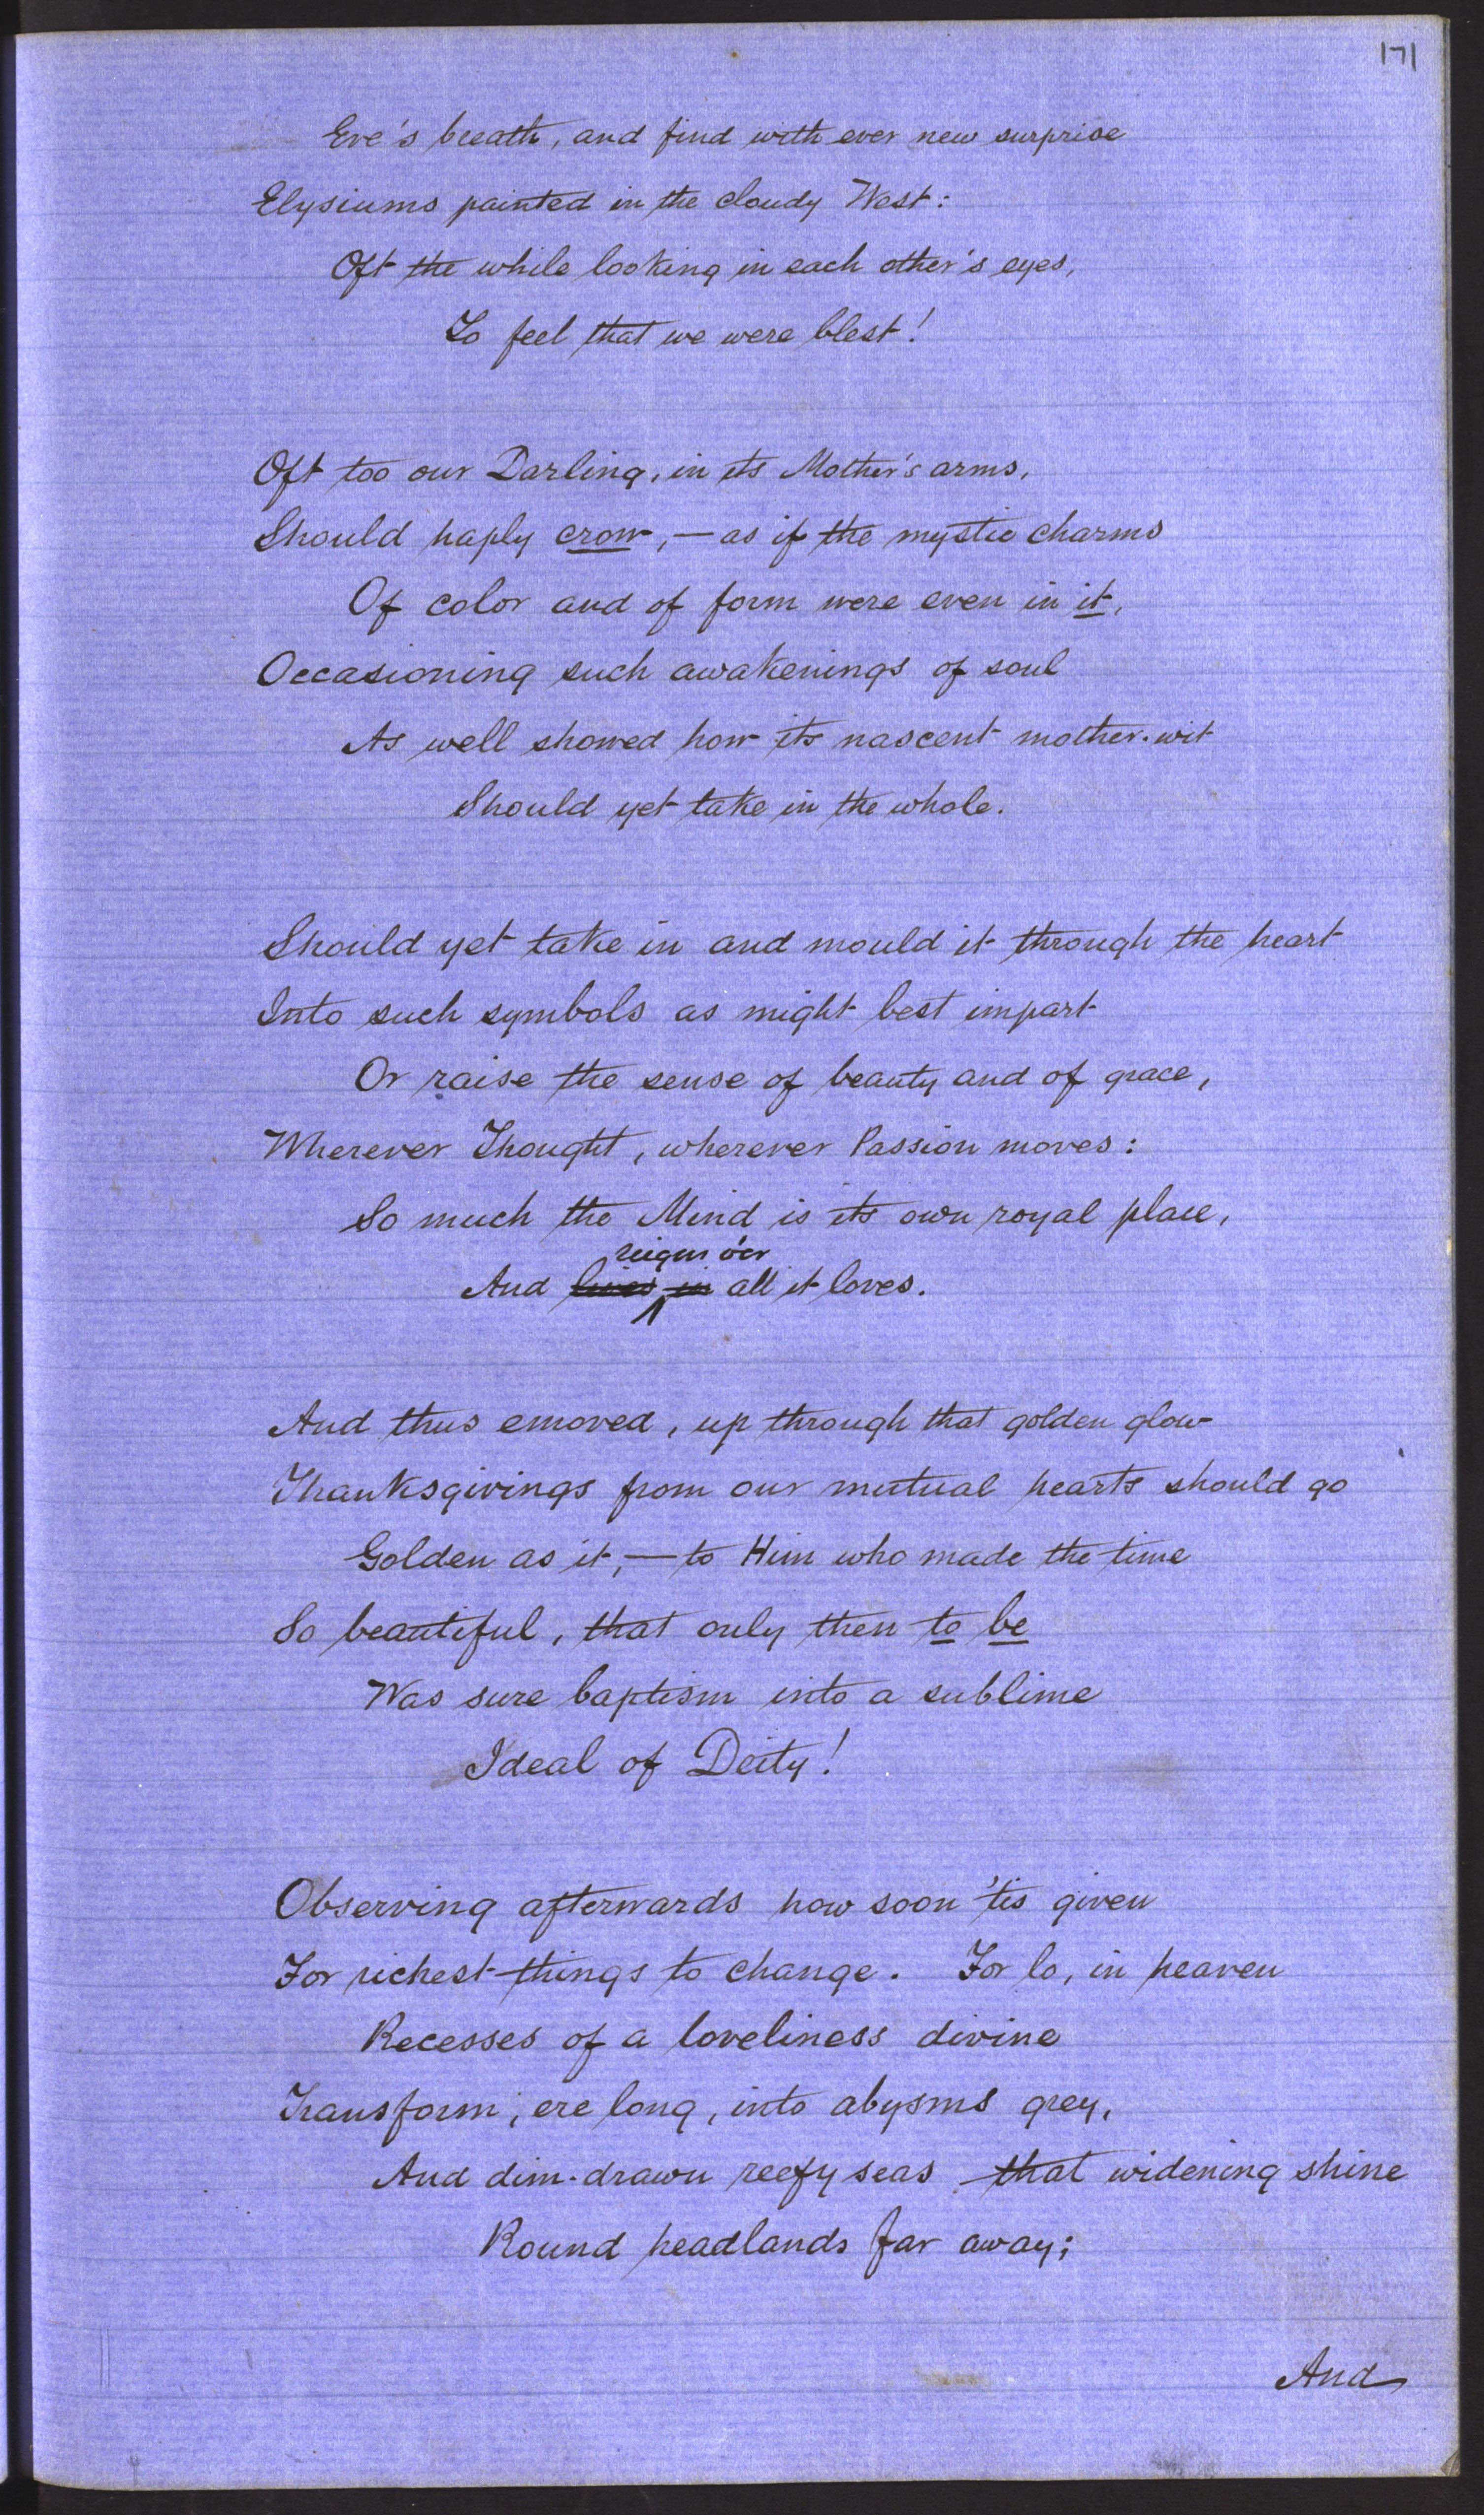 171
Eve's breath, and find with ever new surprise
Elysiums painted in the cloudy West:
Oft the while looking in each other's eyes,
To feel that we were blest!
Oft too our Darling, in its Mother's arms,
Should haply crow,—as if the mystic charms
Of color and of form were even in it,
Occasioning such awakenings of soul
As well showed how its nascent mother-wit
Should yet take in the whole.
Should yet take in and mould it through the heart
Into such symbols as might best impart
Or raise the sense of beauty and of grace,
Wherever Thought, wherever Passion moves:
So much the Mind is its own royal place,
reigns o'er
And lives in all it loves.
And thus emoved, up through that golden glow
Thanksgivings from our mutual hearts should go
Golden as it,—to Him who made the time
So beautiful, that only then to be
Was sure baptism into a sublime
Ideal of Deity!
Observing afterwards how soon 'tis given
For richest things to change. For lo, in heaven
Recesses of a loveliness divine
Transform, ere long, into abysms grey,
And dim-drawn reefy seas that widening shine
Round headlands far away;
And